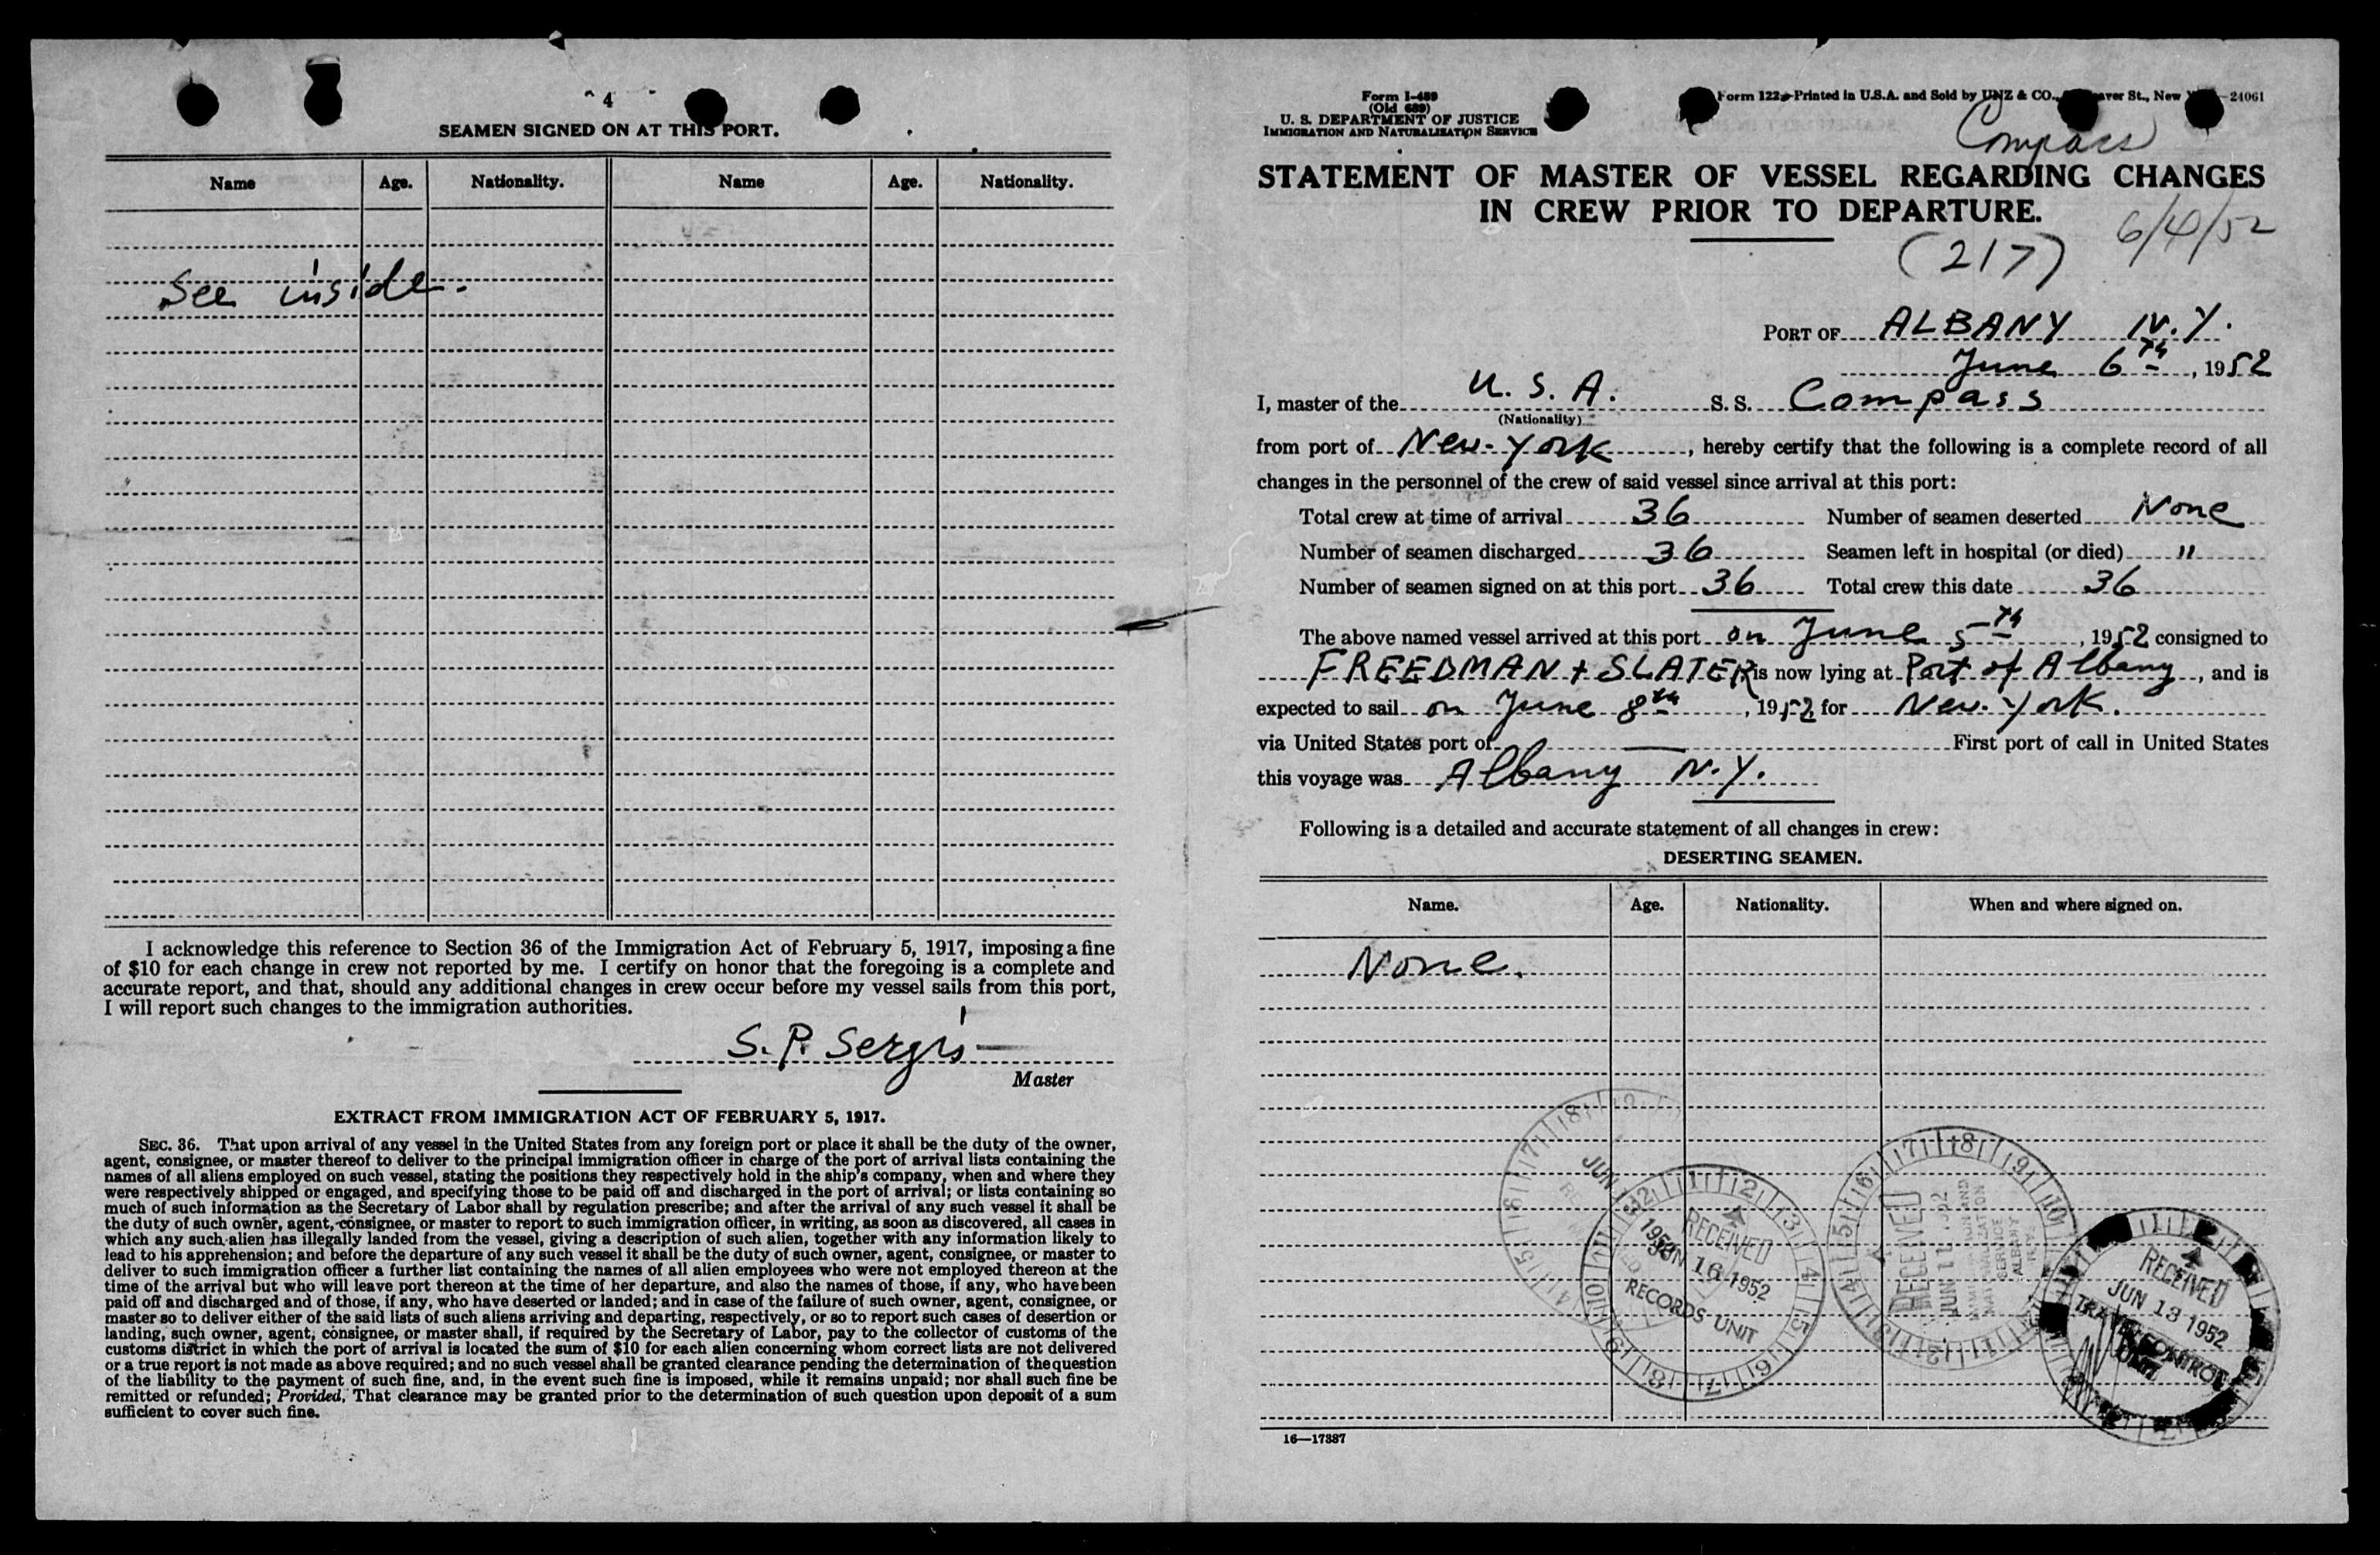 4
SEAMEN SIGNED ON AT THIS PORT.
Name Age. Nationality. Name Age. Nationality.
See inside.
I acknowledge this reference to Section 36 of the Immigration Act of February 5, 1917, imposing a fine
of $10 for each change in crew not reported by me. I certify on honor that the foregoing is a complete and
accurate report, and that, should any additional changes in crew occur before my vessel sails from this port,
I will report such changes to the immigration authorities.
S. P. Sergis
Master
EXTRACT FROM IMMIGRATION ACT OF FEBRUARY 5, 1917.
SEC. 36. That upon arrival of any vessel in the United States from any foreign port or place it shall be the duty of the owner,
agent, consignee, or master thereof to deliver to the principal immigration officer in charge of the port of arrival lists containing the
names of all aliens employed on such vessel, stating the positions they respectively hold in the ship's company, when and where they
were respectively shipped or engaged, and specifying those to be paid off and discharged in the port of arrival; or lists containing so
much of such information as the Secretary of Labor shall by regulation prescribe; and after the arrival of any such vessel it shall be
the duty of such owner, agent, consignee, or master to report to such immigration officer, in writing, as soon as discovered, all cases in
which any such alien has illegally landed from the vessel, giving a description of such alien, together with any information likely to
lead to his apprehension; and before the departure of any such vessel it shall be the duty of such owner, agent, consignee, or master to
deliver to such immigration officer a further list containing the names of all alien employees who were not employed thereon at the
time of the arrival but who will leave port thereon at the time of her departure, and also the names of those, if any, who have been
paid off and discharged and of those, if any, who have deserted or landed; and in case of the failure of such owner, agent, consignee, or
master so to deliver either of the said lists of such aliens arriving and departing, respectively, or so to report such cases of desertion or
landing, such owner, agent, consignee, or master shall, if required by the Secretary of Labor, pay to the collector of customs of the
customs district in which the port of arrival is located the sum of $10 for each alien concerning whom correct lists are not delivered
or a true report is not made as above required; and no such vessel shall be granted clearance pending the determination of the question
of the liability to the payment of such fine, and, in the event such fine is imposed, while it remains unpaid; nor shall such fine be
remitted or refunded; Provided, That clearance may be granted prior to the determination of such question upon deposit of a sum
sufficient to cover such fine.
Form I-489
(Old 689)
U. S. DEPARTMENT OF JUSTICE
IMMIGRATION AND NATURALIZATION SERVICE
Form 122 Printed in U.S.A. and Sold by UNZ & CO., St., New 24061
Compass
STATEMENT OF MASTER OF VESSEL REGARDING CHANGES
IN CREW PRIOR TO DEPARTURE.
6/4/52
(217)
PORT OF ALBANY N.Y.
June 6th, 1952
I, master of the U. S. A. S. S. Compass
(Nationality)
from port of New-York, hereby certify that the following is a complete record of all
changes in the personnel of the crew of said vessel since arrival at this port:
Total crew at time of arrival 36 Number of seamen deserted None
Number of seamen discharged 36 Seamen left in hospital (or died) "
Number of seamen signed on at this port 36 Total crew this date 36
The above named vessel arrived at this port on June 5th, 1952 consigned to
FREEDMAN + SLATER is now lying at Port of Albany, and is
expected to sail on June 8th, 1952 for New-York.
via United States port of — First port of call in United States
this voyage was Albany N.Y.
Following is a detailed and accurate statement of all changes in crew:
DESERTING SEAMEN.
Name. Age. Nationality. When and where signed on.
None.
RECEIVED
JUN 16 1952
RECORDS UNIT
RECEIVED
JUN 11 1952
IMMIGRATION AND
NATURALIZATION
SERVICE
ALBANY
N.Y.
RECEIVED
JUN 13 1952
TRAVEL CONTROL
UNIT
16—17387